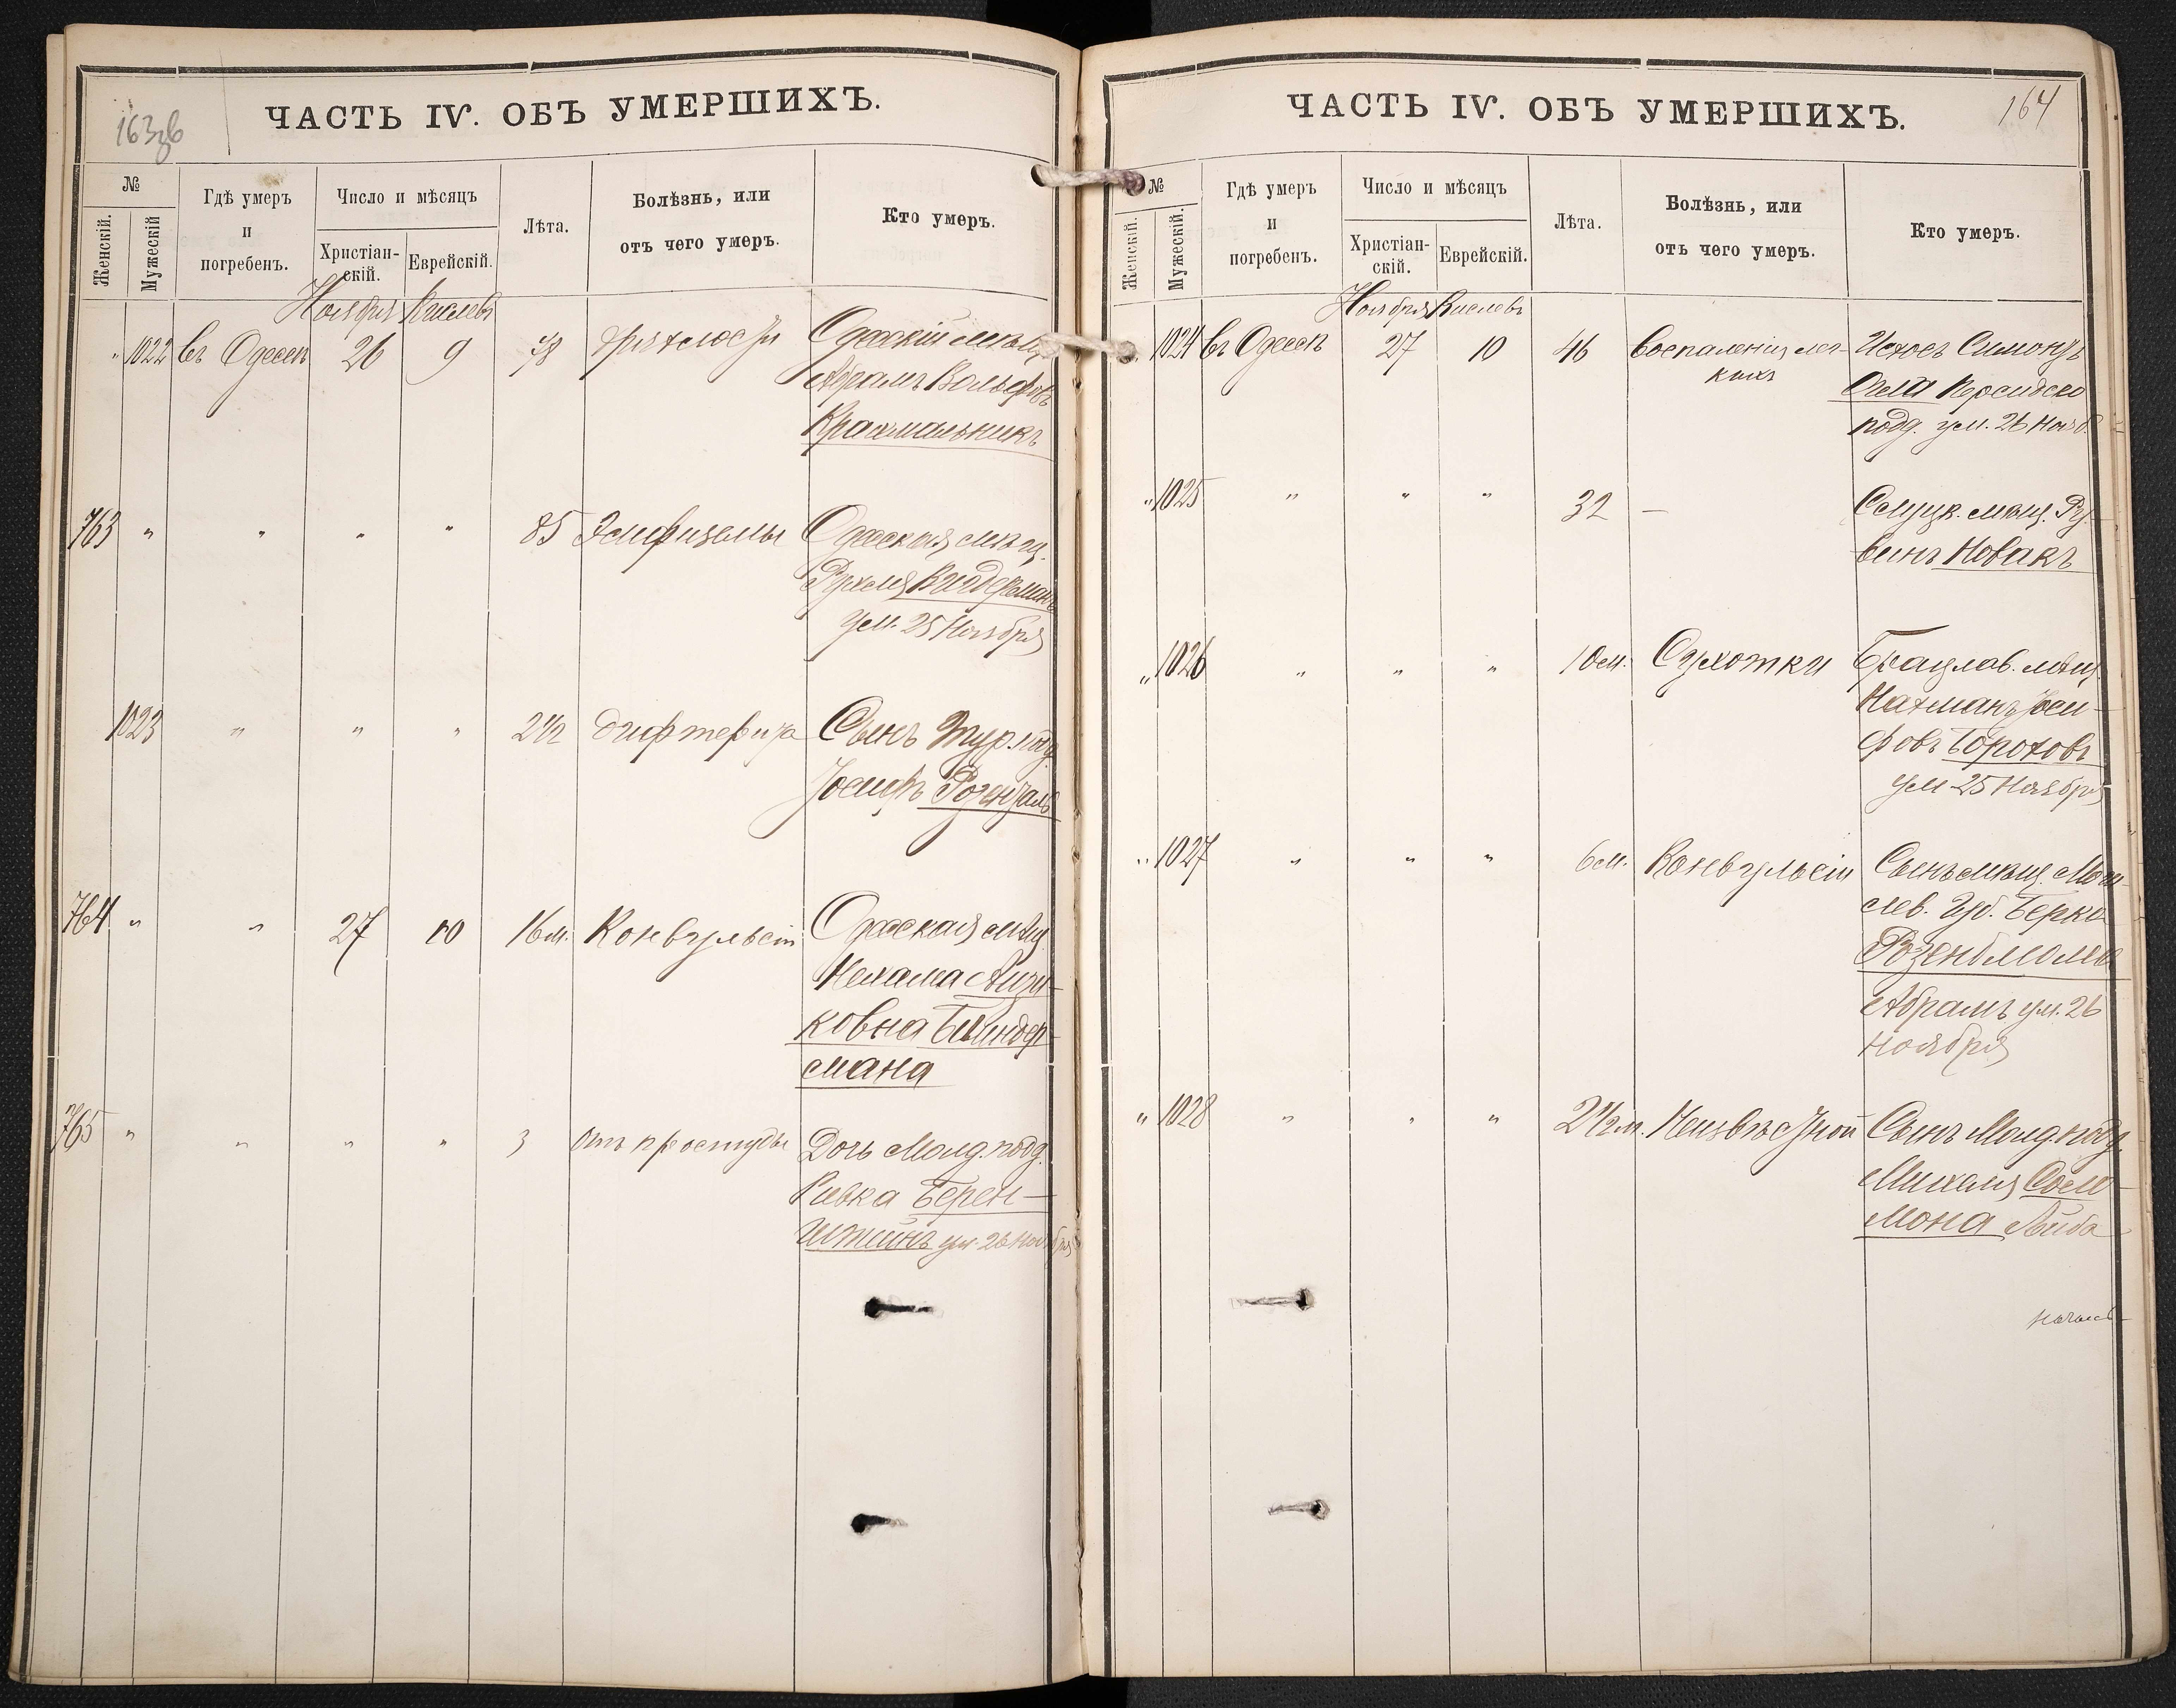 163об
ЧАСТЬ IV. ОБЪ УМЕРШИХЪ.
№
Женскій.
Мужескій
Гдѣ умеръ
и
погребенъ.
Число и мѣсяцъ
Христіан-
скій.
Еврейскій.
Лѣта.
Болѣзнь, или
отъ чего умеръ.
Кто умеръ.
Ноября Кислевъ
" 1022 въ Одессѣ 26 9 Одесскій мѣщ.
Абрамъ Вольфовъ
Крахмальникъ
763 " " " " 85 Эмфиземы Одесская мѣщ.
Рухля
ум. 25 Ноября
1023 " " " 2 1/2 дифтерита Сынъ Тур. под.
Іосифъ Розенталь
764 " " 27 10 16 м. Конвульсіи Одесская мѣщ.
Нехама Айзи-
ковна
мана
765 " " " " 3 отъ простуды Дочь Молд. подд.
Ривка Берен-
штейнъ ум. 26 Ноября
164
ЧАСТЬ IV. ОБЪ УМЕРШИХЪ.
№
Женскій.
Мужескій.
Гдѣ умеръ
и
погребенъ.
Число и мѣсяцъ
Христіан-
скій.
Еврейскій.
Лѣта.
Болѣзнь, или
отъ чего умеръ.
Кто умеръ.
Ноября Кислевъ
" 1024 въ Одессѣ 27 10 46 Воспаленія лег-
кихъ
Симонъ
Персидско
подд. ум. 26 Нояб.
" 1025 " " " 32 — мѣщ. Ру-
винъ Новакъ
" 1026 " " " 10 м. Сухотки Брацлав. мѣщ.
Нахманъ Іоси-
фовъ Бороховъ
ум 25 Ноября
" 1027 " " " 6 м. Конвульсіи Сынъ мѣщ. Моги-
лев. Губ. Берка
Розенблюма
Абрамъ ум. 26
Ноября
" 1028 " " " 2 1/2 м. Неизвѣстной Сынъ Молд. подд.
Михаля Соло-
мона Лейба